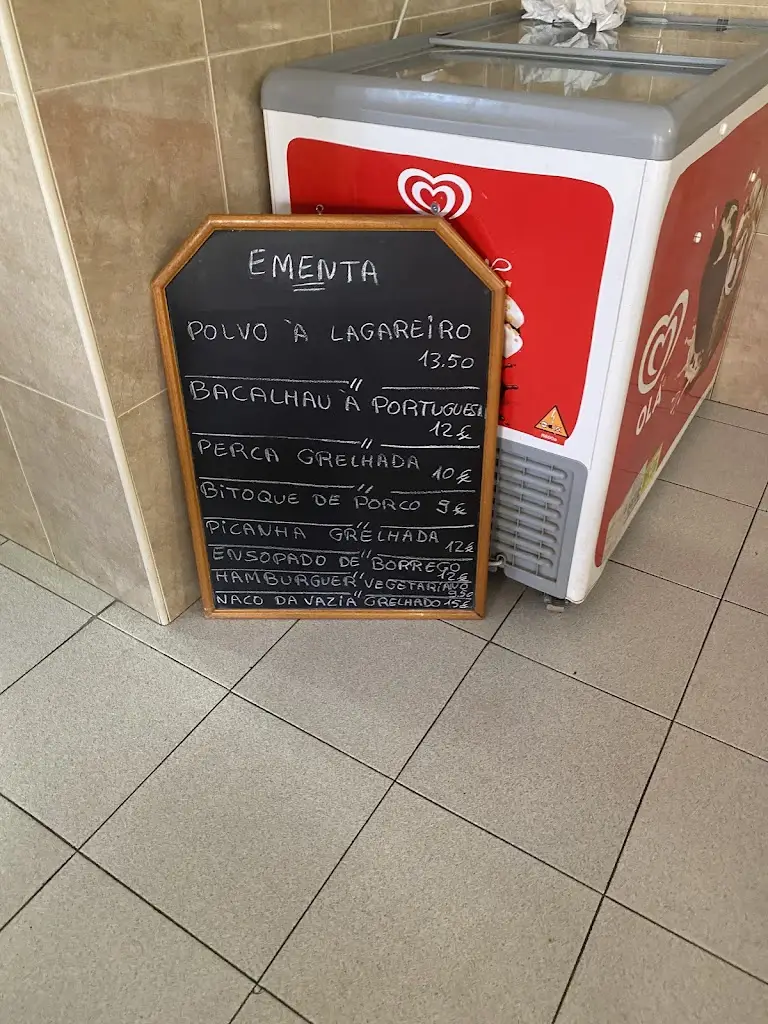 EMENTA
POLVO À LAGAREIRO
13.50
BACALHAU À PORTUGUESA
12€
PERCA GRELHADA 10€
BITOQUE DE PORCO 9€
PICANHA GRELHADA
12€
ENSOPADO DE BORREGO
12€
HAMBURGUER VEGETARIANO
9,50
NACO DA VAZIA GRELHADO 15€
OLÁ